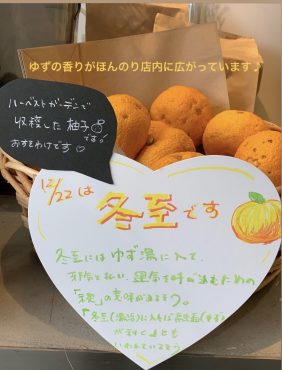 ゆずの香りがほんのり店内に広がっています♪
ハーベストガーデンで
収穫した柚子
です!
おすそわけです♡
12/22は
冬至です
冬至にはゆず湯に入って、
邪気を払い、運気を呼び込むための
「禊」の意味があるそう。
「冬至(湯治)に入れば融通(ゆず)
がきく」とも
いわれているそう